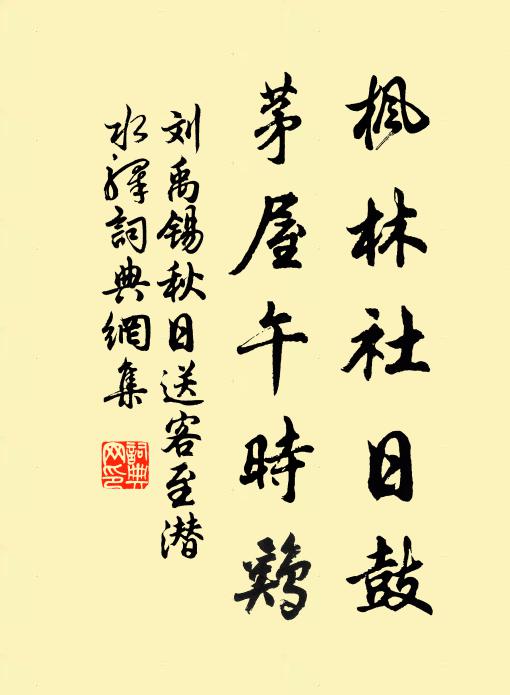 枫林社日鼓
茅屋午時鷄
刘禹锡秋日送客至潜
水驛詞典網集
詞典
网印